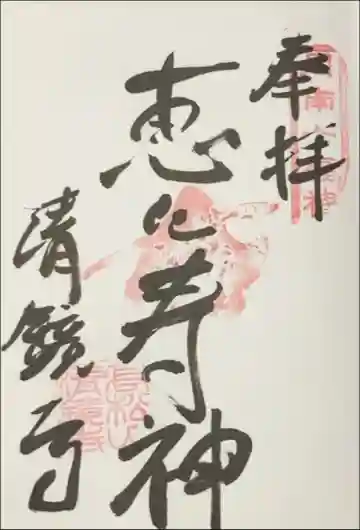 奉拝
恵比寿神
清鏡寺